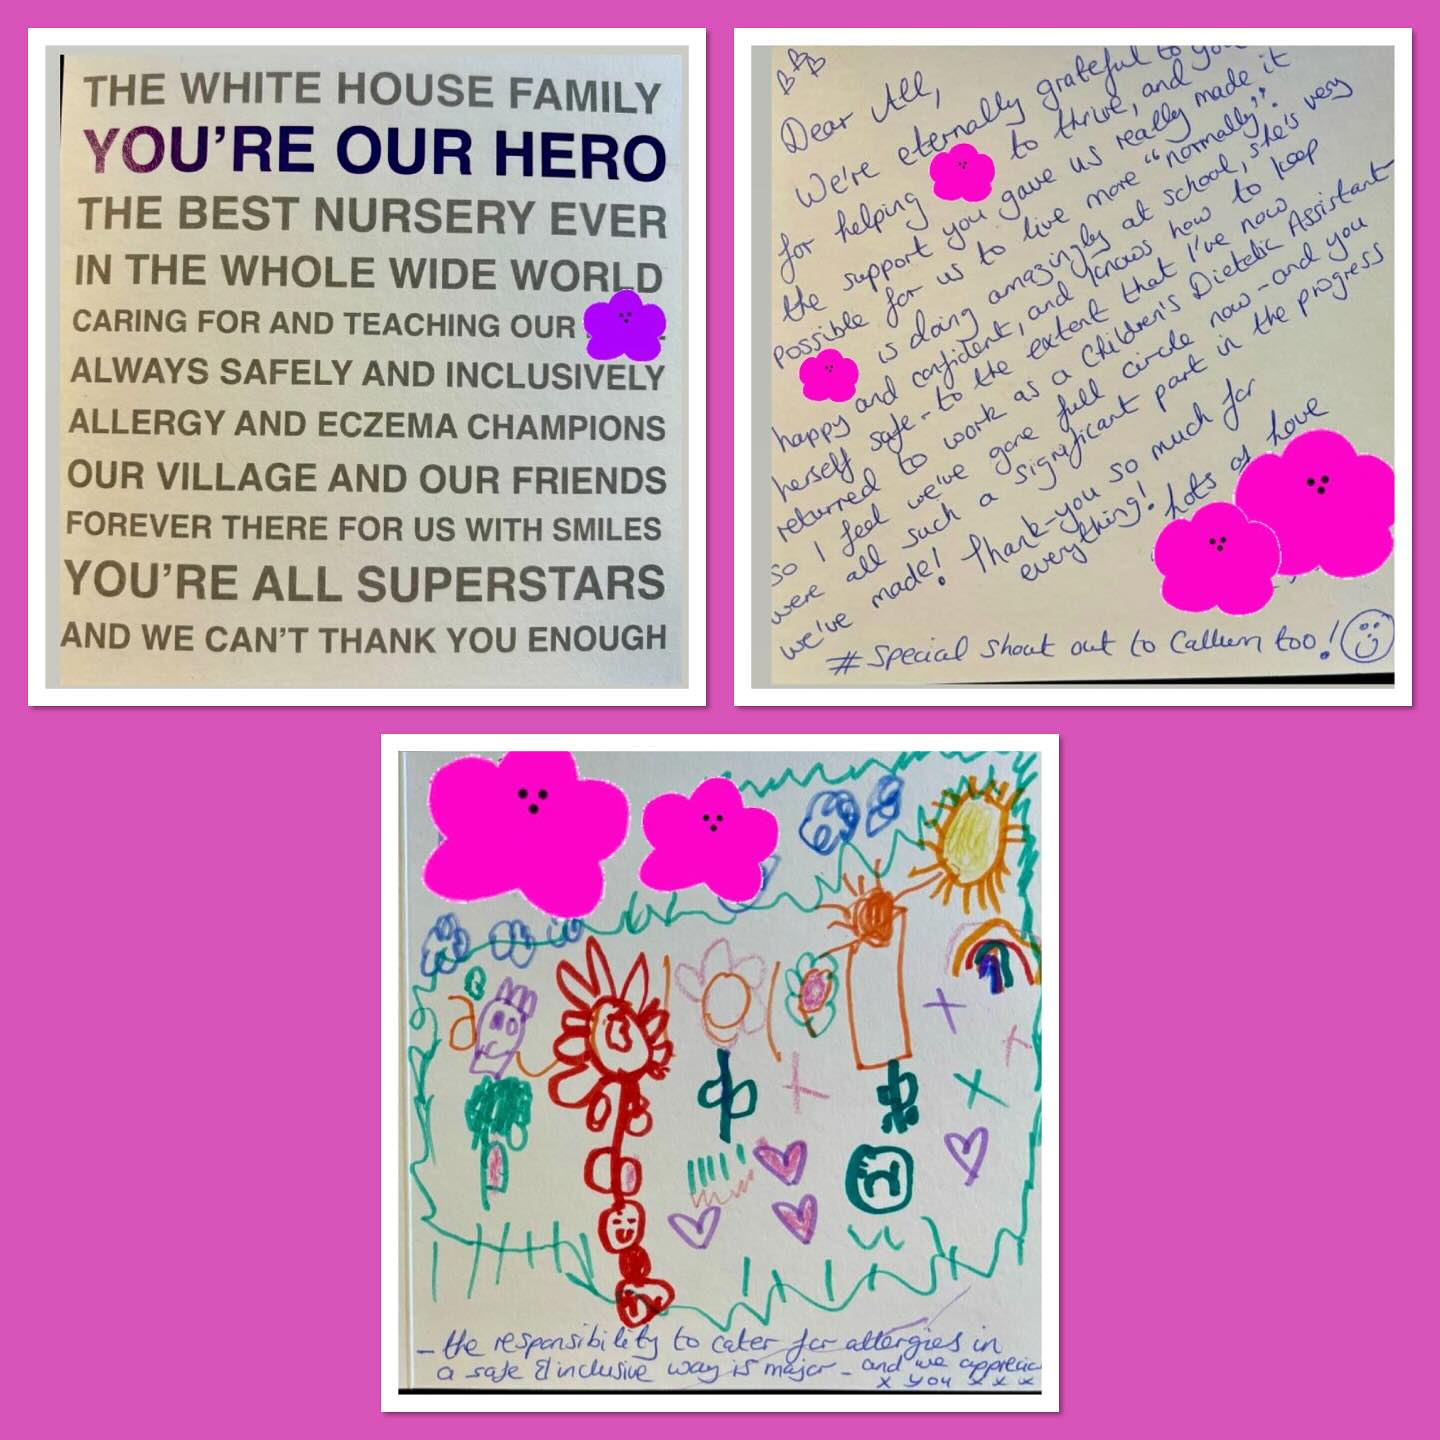 THE WHITE HOUSE FAMILY
YOU'RE OUR HERO
THE BEST NURSERY EVER
IN THE WHOLE WIDE WORLD
CARING FOR AND TEACHING OUR
ALWAYS SAFELY AND INCLUSIVELY
ALLERGY AND ECZEMA CHAMPIONS
OUR VILLAGE AND OUR FRIENDS
FOREVER THERE FOR US WITH SMILES
YOU'RE ALL SUPERSTARS
AND WE CAN'T THANK YOU ENOUGH
Dear All,
We're eternally grateful to you
for helping to thrive, and
the support you gave us really made it
possible for us to live more "normally".
is doing amazingly at school, she's very
happy and confident, and knows how to keep
herself safe - to the extent that I've now
returned to work as a Children's Dietetic Assistant
so I feel we've gone full circle now - and you
were all such a significant part in the progress
we've made! Thank-you so much for
everything! Lots of Love
# Special shout out to Callum too!
- the responsibility to cater for allergies in
a safe & inclusive way is major - and we
x you x x x